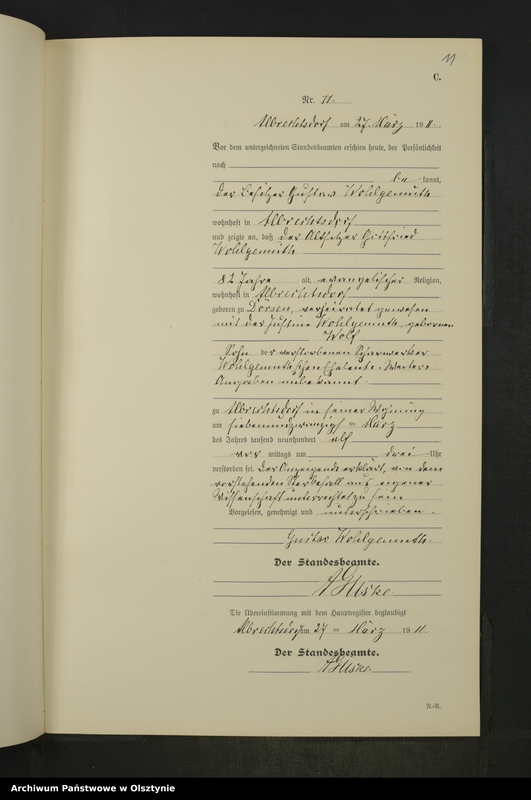 11
C.
Nr. 11.
Albrechtsdorf am 27. März 1911.
Vor dem unterzeichneten Standesbeamten erschien heute, der Persönlichkeit
nach
be kannt,
der Besitzer Gustav Wohlgemuth
wohnhaft in Albrechtsdorf
und zeigte an, daß der Altsitzer Gottfried
Wohlgemuth
82 Jahre alt, evangelischer Religion,
wohnhaft in Albrechtsdorf
geboren zu Dörsen, verheiratet gewesen
mit der Justine Wohlgemuth, geborenen
Wolf
Sohn der verstorbenen Scharwerker
Wohlgemuth'schen Eheleute. Weitere
Angaben unbekannt.
zu Albrechtsdorf in seiner Wohnung
am siebenundzwanzigsten März
des Jahres tausend neunhundert elf
vor mittags um drei Uhr
verstorben sei. Der Anzeigende erklärt, von dem
vorstehenden Sterbefall aus eigener
Wissenschaft unterrichtet zu sein
Vorgelesen, genehmigt und unterschrieben.
Gustav Wohlgemuth.
Der Standesbeamte.
Die Übereinstimmung mit dem Hauptregister beglaubigt
Albrechtsdorf am 27 März 1911.
Der Standesbeamte.
Archiwum Państwowe w Olsztynie